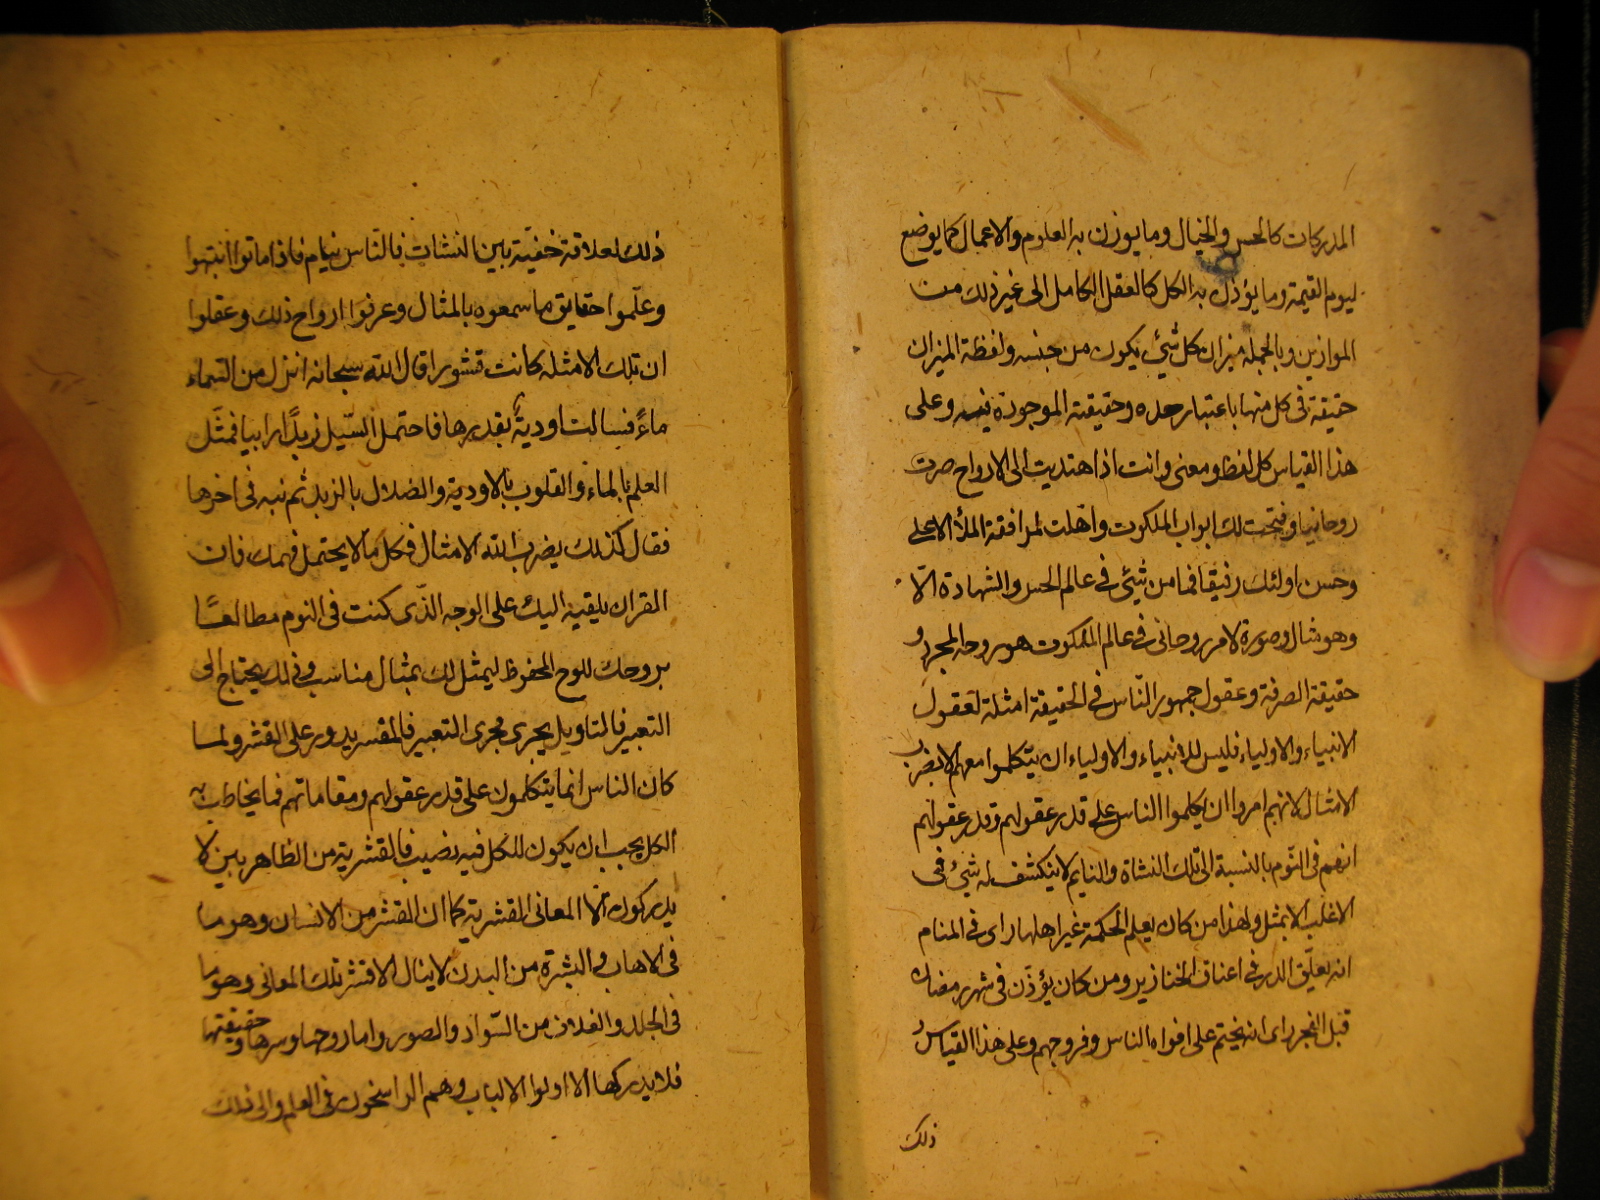 المدركات كالحس والخيال وما يوزن به العلوم والاعمال كما يوضع
ليوم القيمة وما يوزن به الكل كالعقل الكامل الى غير ذلك من
الموازين وبالجملة ميزان كل شيء يكون من جنسه ولفظة الميزان
حقيقة في كل منها باعتبار حده وحقيقته الموجودة فيه وعلى
هذا القياس كل لفظ ومعنى وانت اذا اهتديت الى الارواح صرت
روحانيا وفتحت لك ابواب الملكوت واهلت لمرافقة الملأ الاعلى
وحسن اولئك رفيقا فما من شيء في عالم الحس والشهادة الّا
وهو مثال وصورة لامر روحاني في عالم الملكوت هو روحه المجرد و
حقيقة الصرفة وعقول جمهور النّاس في الحقيقة امثلة لعقول
الانبياء والاولياء فليس للانبياء والاولياء ان يتكلموا معهم الا بضرب
الامثال لانهم امروا ان يكلموا الناس على قدر عقولهم وقدر عقولهم
انهم في النّوم بالنسبة الى تلك النشاة والنايم لا ينكشف له شيء في
الاغلب الا بمثل ولهذا من كان يعلم الحكمة غير اهلها راى في المنام
انه يعلّق الدر في اعناق الخنازير ومن كان يؤذّن في شهر رمضان
قبل الفجر راى انه يختم على افواه الناس وفروجهم وعلى هذا القياس و
ذلك
ذلك لعلاقة خفيّة بين النشات فالنّاس نيام فاذا ماتوا انتبهوا
وعلّموا حقايق ما سمعوه بالمثال وعرفوا ارواح ذلك وعقلوا
ان تلك الامثلة كانت قشورا قال الله سبحانه انزل من السّماء
ماءً فسالت اودية بقدرها فاحتمل السّيل زبدًا رابيا فمثّل
العلم بالماء والقلوب بالاودية والضلال بالزبد ثم نبه في اخرها
فقال كذلك يضرب الله الامثال فكل ما لا يحتمل فهمك فان
القران يلقيه اليك على الوجه الذّى كنت في النوم مطالعًا
بروحك للوح المحفوظ ليمثل لك بمثال مناسب وذلك يحتاج الى
التعبير فالتاويل يجرى مجرى التعبير فالمفسر يدور على القشر ولما
كان الناس انما يتكلمون على قدر عقولهم ومقاماتهم فما يخاطب به
الكل يجب ان يكون للكل فيه نصيب فالقشرية من الظاهريين لا
يدركون الّا المعاني القشرية كما ان القشر من الانسان وهو ما
في الاهاب والبشرة من البدن لا ينال الا قشر تلك المعاني وهو ما
في الجلد والغلاف من السّواد والصور واما روحها وسرها وحقيقتها
فلا يدركها الا اولوا الالباب وهم الراسخون في العلم والى ذلك